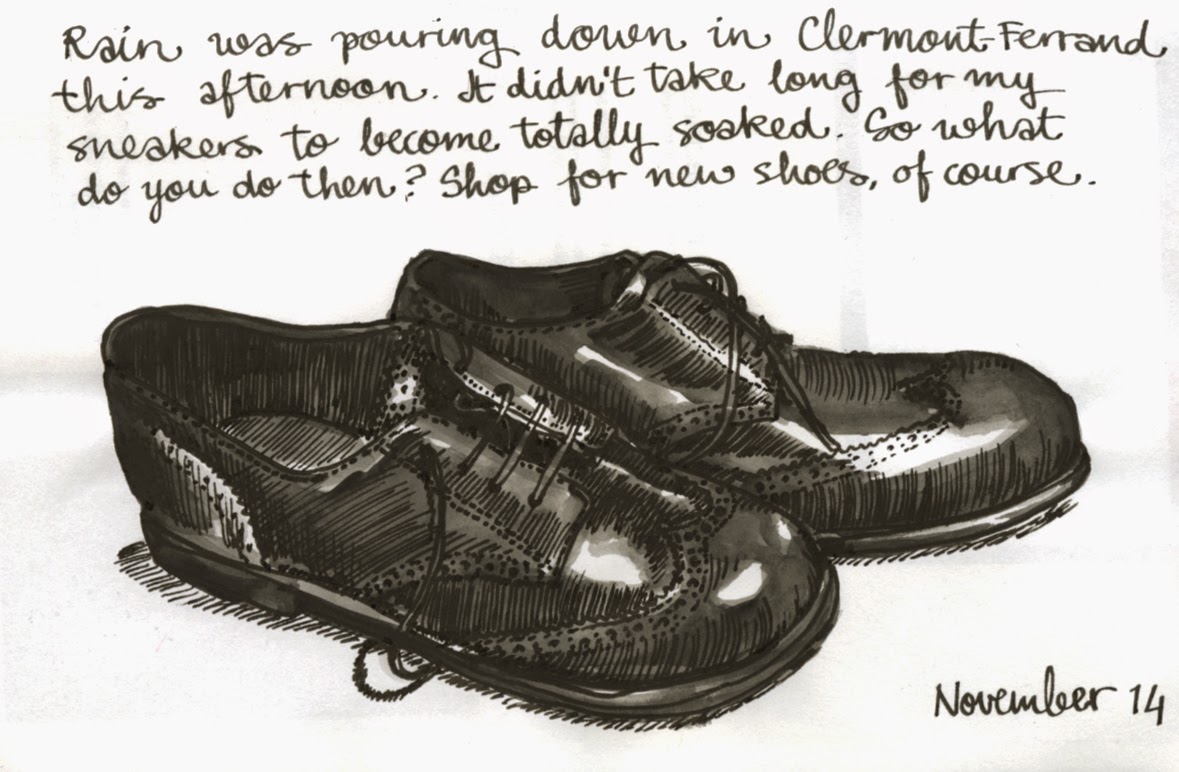 Rain was pouring down in Clermont-Ferrand
this afternoon. It didn't take long for my
sneakers to become totally soaked. So what
do you do then? Shop for new shoes, of course.
November 14